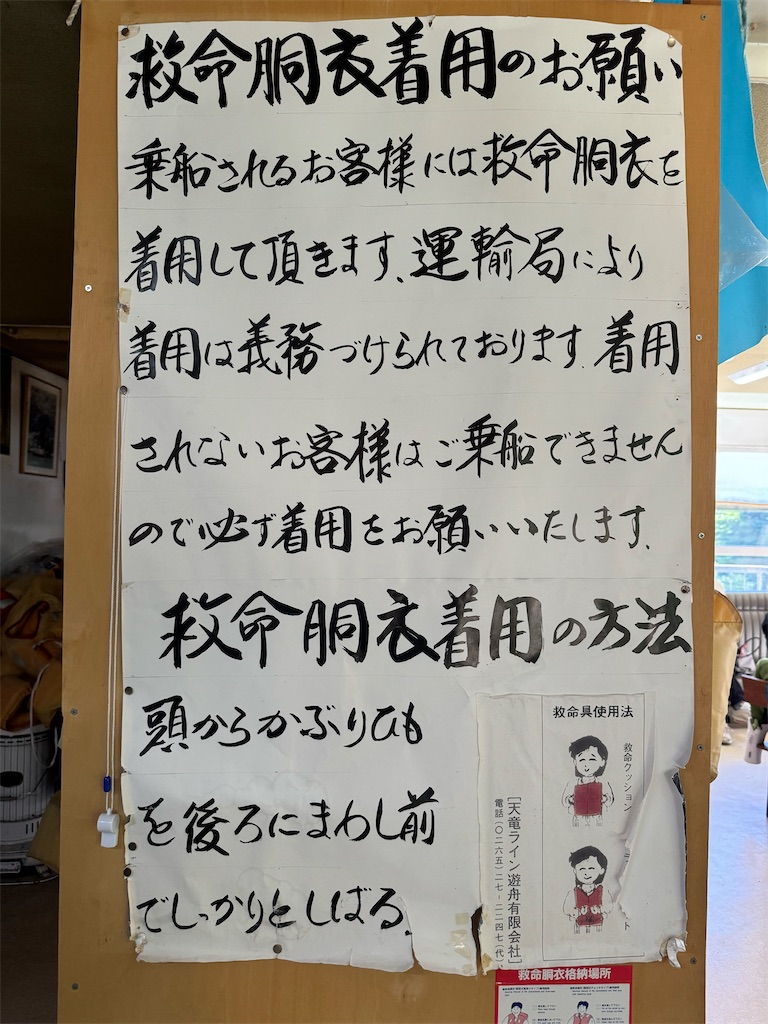 救命胴衣着用のお願い
乗船されるお客様には救命胴衣を
着用して頂きます、運輸局により
着用は義務づけられております。着用
されないお客様はご乗船できません
ので必ず着用をお願いいたします。
救命胴衣着用の方法
頭からかぶりひも
を後ろにまわし前
でしっかりとしばる。
救命具使用法
救命クッション
[天竜ライン遊舟有限会社]
電話(〇二六五)二七-二二四七(代)
救命胴衣格納場所